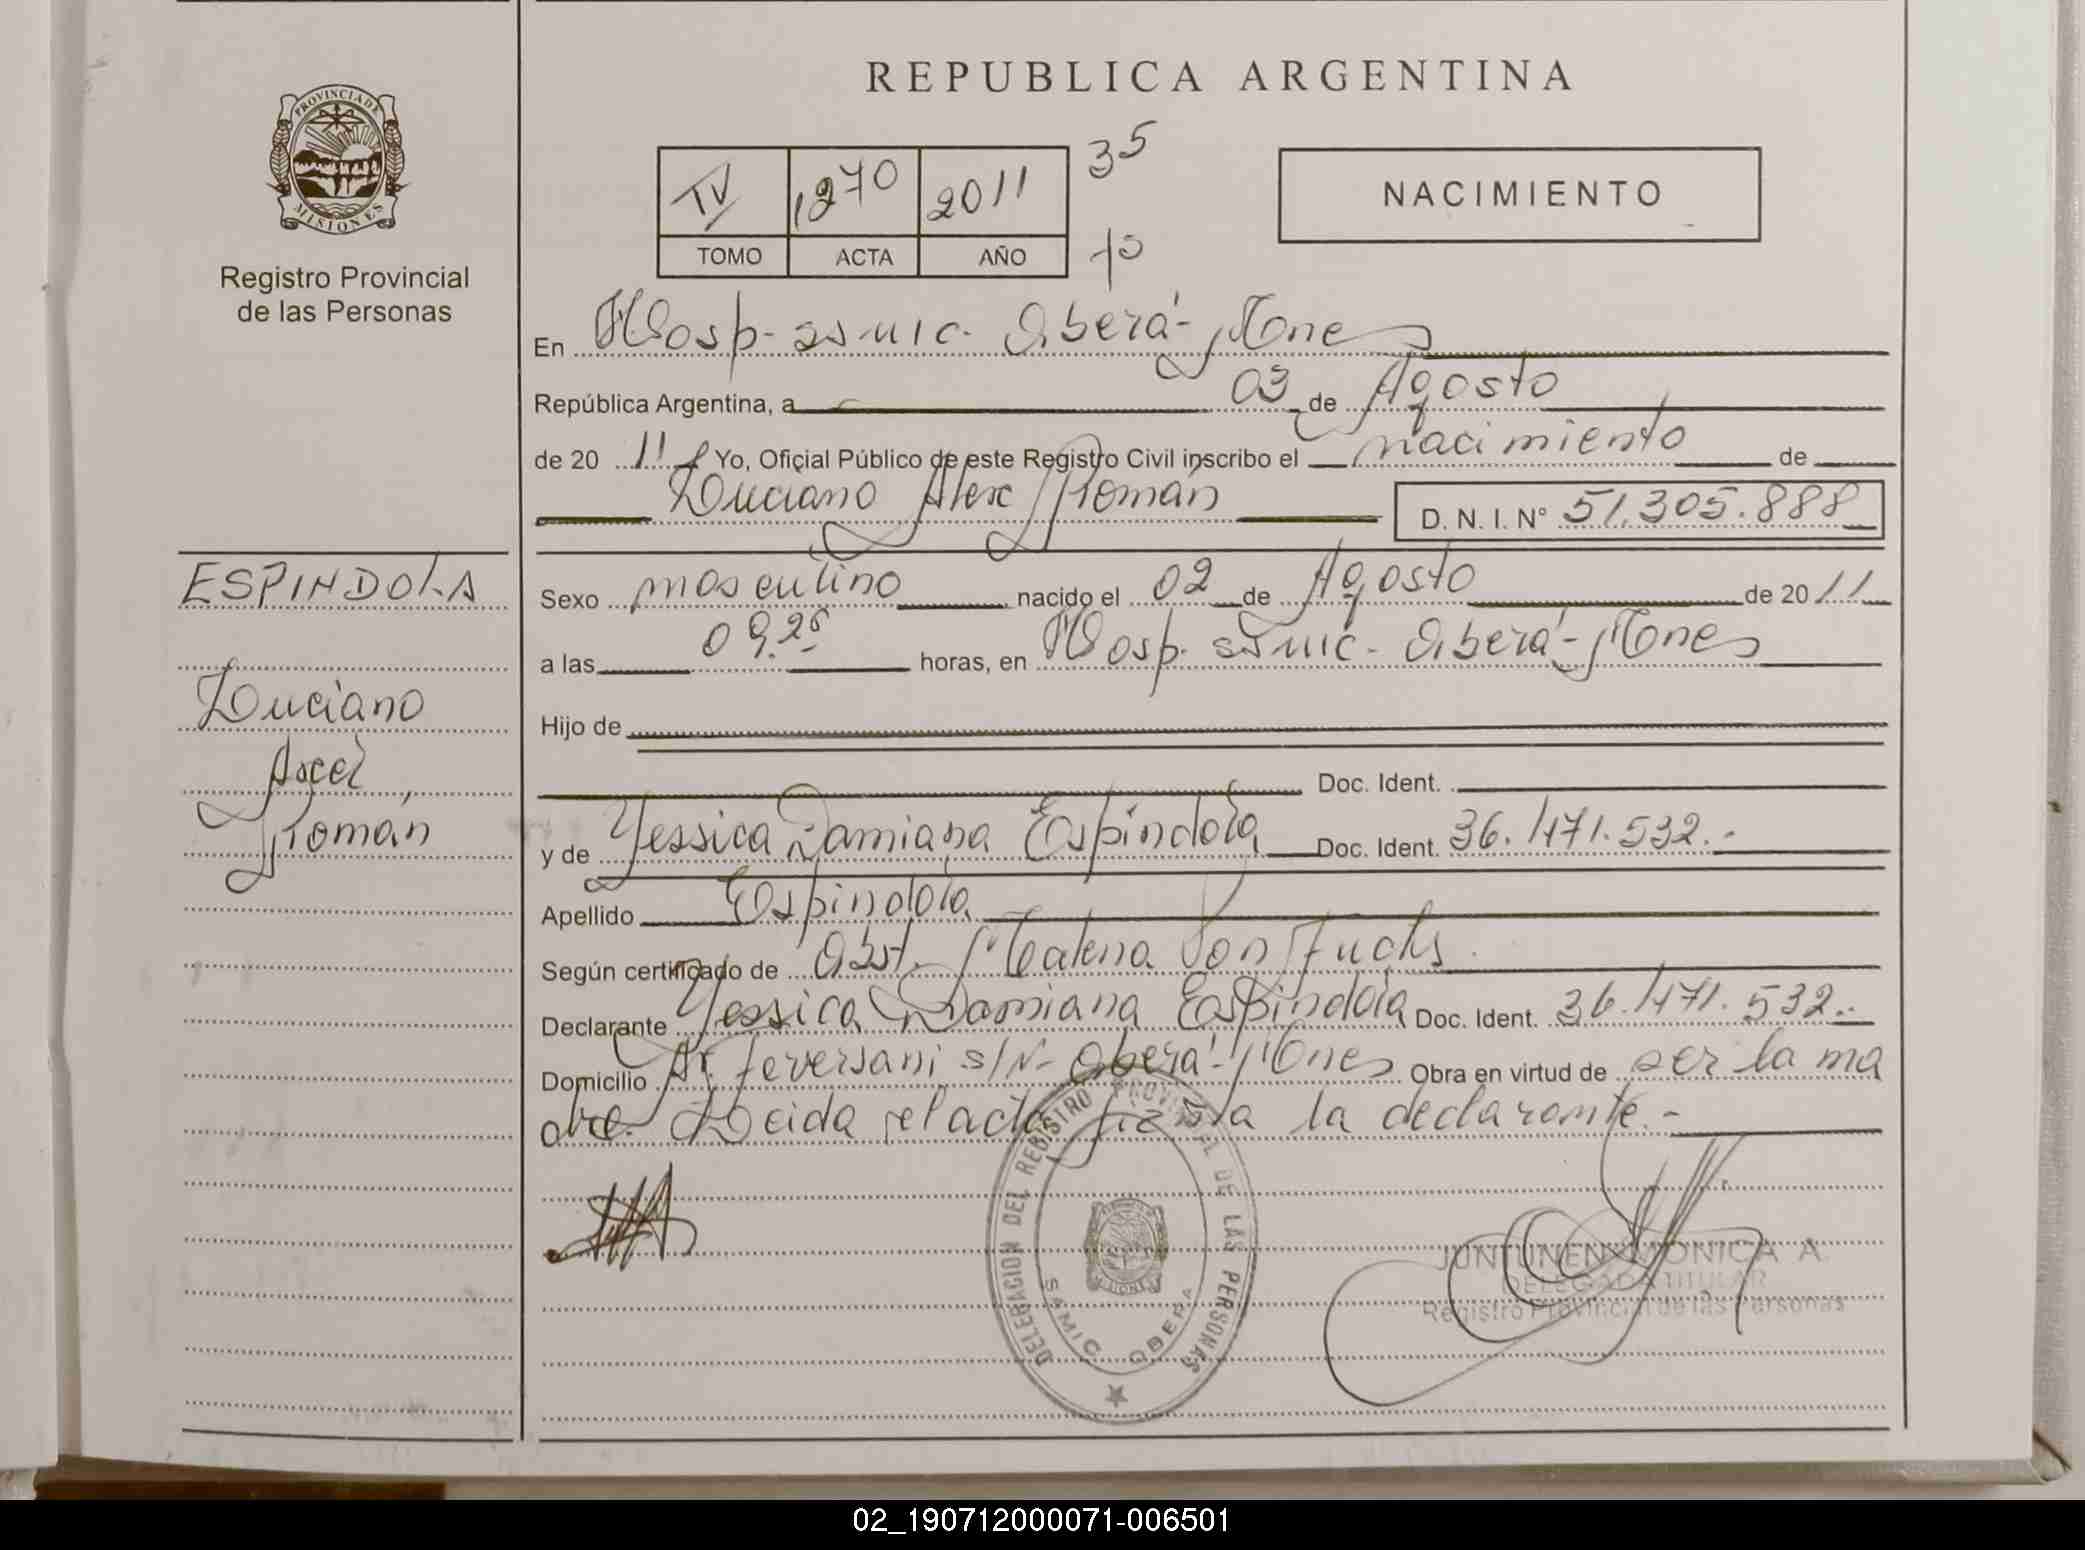 REPUBLICA ARGENTINA
PROVINCIA DE
MISIONES
Registro Provincial
de las Personas
IV 1270 2011 35
TOMO ACTA AÑO
NACIMIENTO
En Hosp. ssmic. Oberá - Mnes
República Argentina, a 03 de Agosto
de 20 11 Yo, Oficial Público de este Registro Civil inscribo el nacimiento de
Luciano Román D. N. I. N° 51.305.888
ESPINDOLA
Luciano
Román
Sexo masculino nacido el 02 de Agosto de 20 11
a las 09.25 horas, en Hosp. ssmic. Oberá - Mnes
Hijo de
Doc. Ident.
y de Yessica Damiana Espíndola Doc. Ident. 36.471.532.-
Apellido Espindola
Según certificado de Obst. Malena Von Fuchs.
Declarante Yessica Damiana Espíndola Doc. Ident. 36.471.532.-
Domicilio s/N- Oberá - Mnes Obra en virtud de ser la ma
dre. Leida el acta firma la declarante.-
DELEGACION DEL REGISTRO PROVINCIAL DE LAS PERSONAS
SAMIC OBERA
JUNTUNEN MONICA A.
DELEGADA TITULAR
Registro Provincial de las Personas
02_190712000071-006501